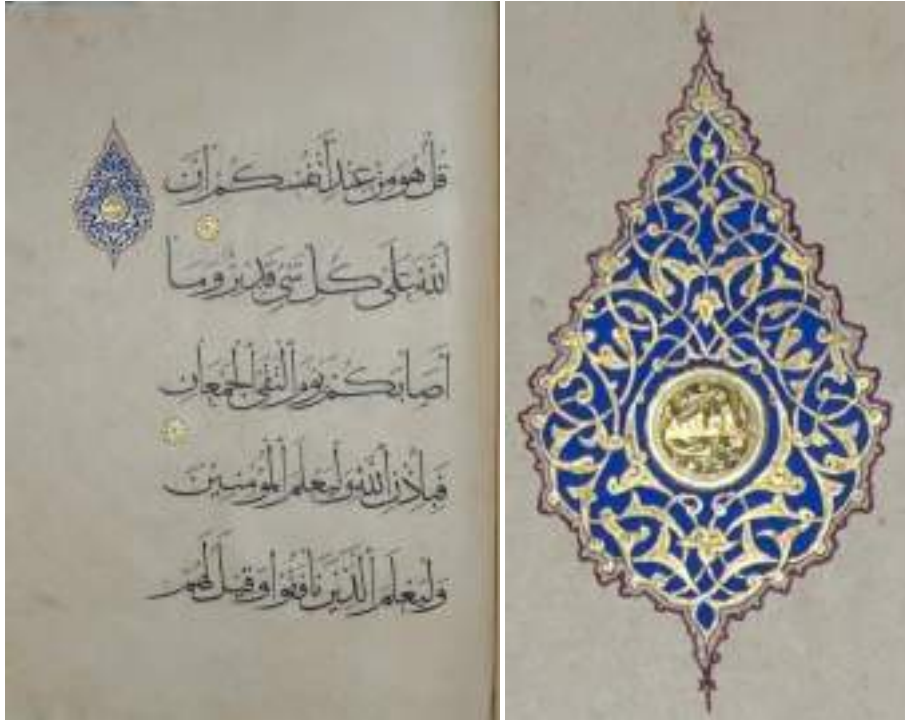 قُلْ هُوَ مِنْ عِنْدِ أَنْفُسِكُمْ إِنَّ
اللّٰهَ عَلَى كُلِّ شَيْءٍ قَدِيرٌ وَمَا
أَصَابَكُمْ يَوْمَ الْتَقَى الْجَمْعَانِ
فَبِإِذْنِ اللّٰهِ وَلِيَعْلَمَ الْمُؤْمِنِينَ
وَلِيَعْلَمَ الَّذِينَ نَافَقُوا وَقِيلَ لَهُمْ